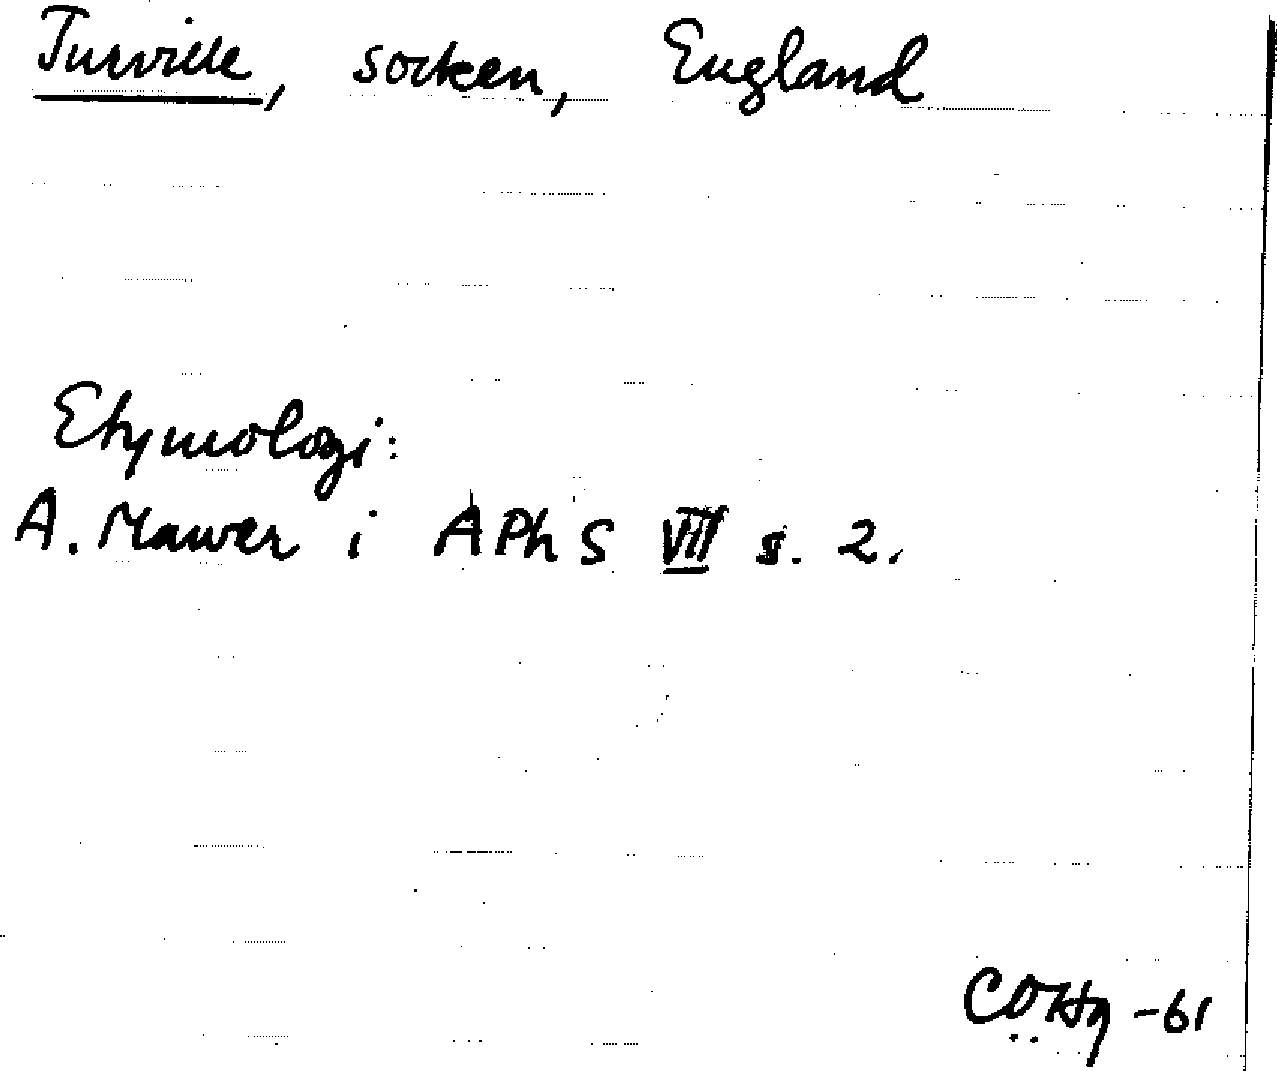 Turville, socken, England
Etymologi:
A. Mawer i APhS VII s. 2.
COHg -61